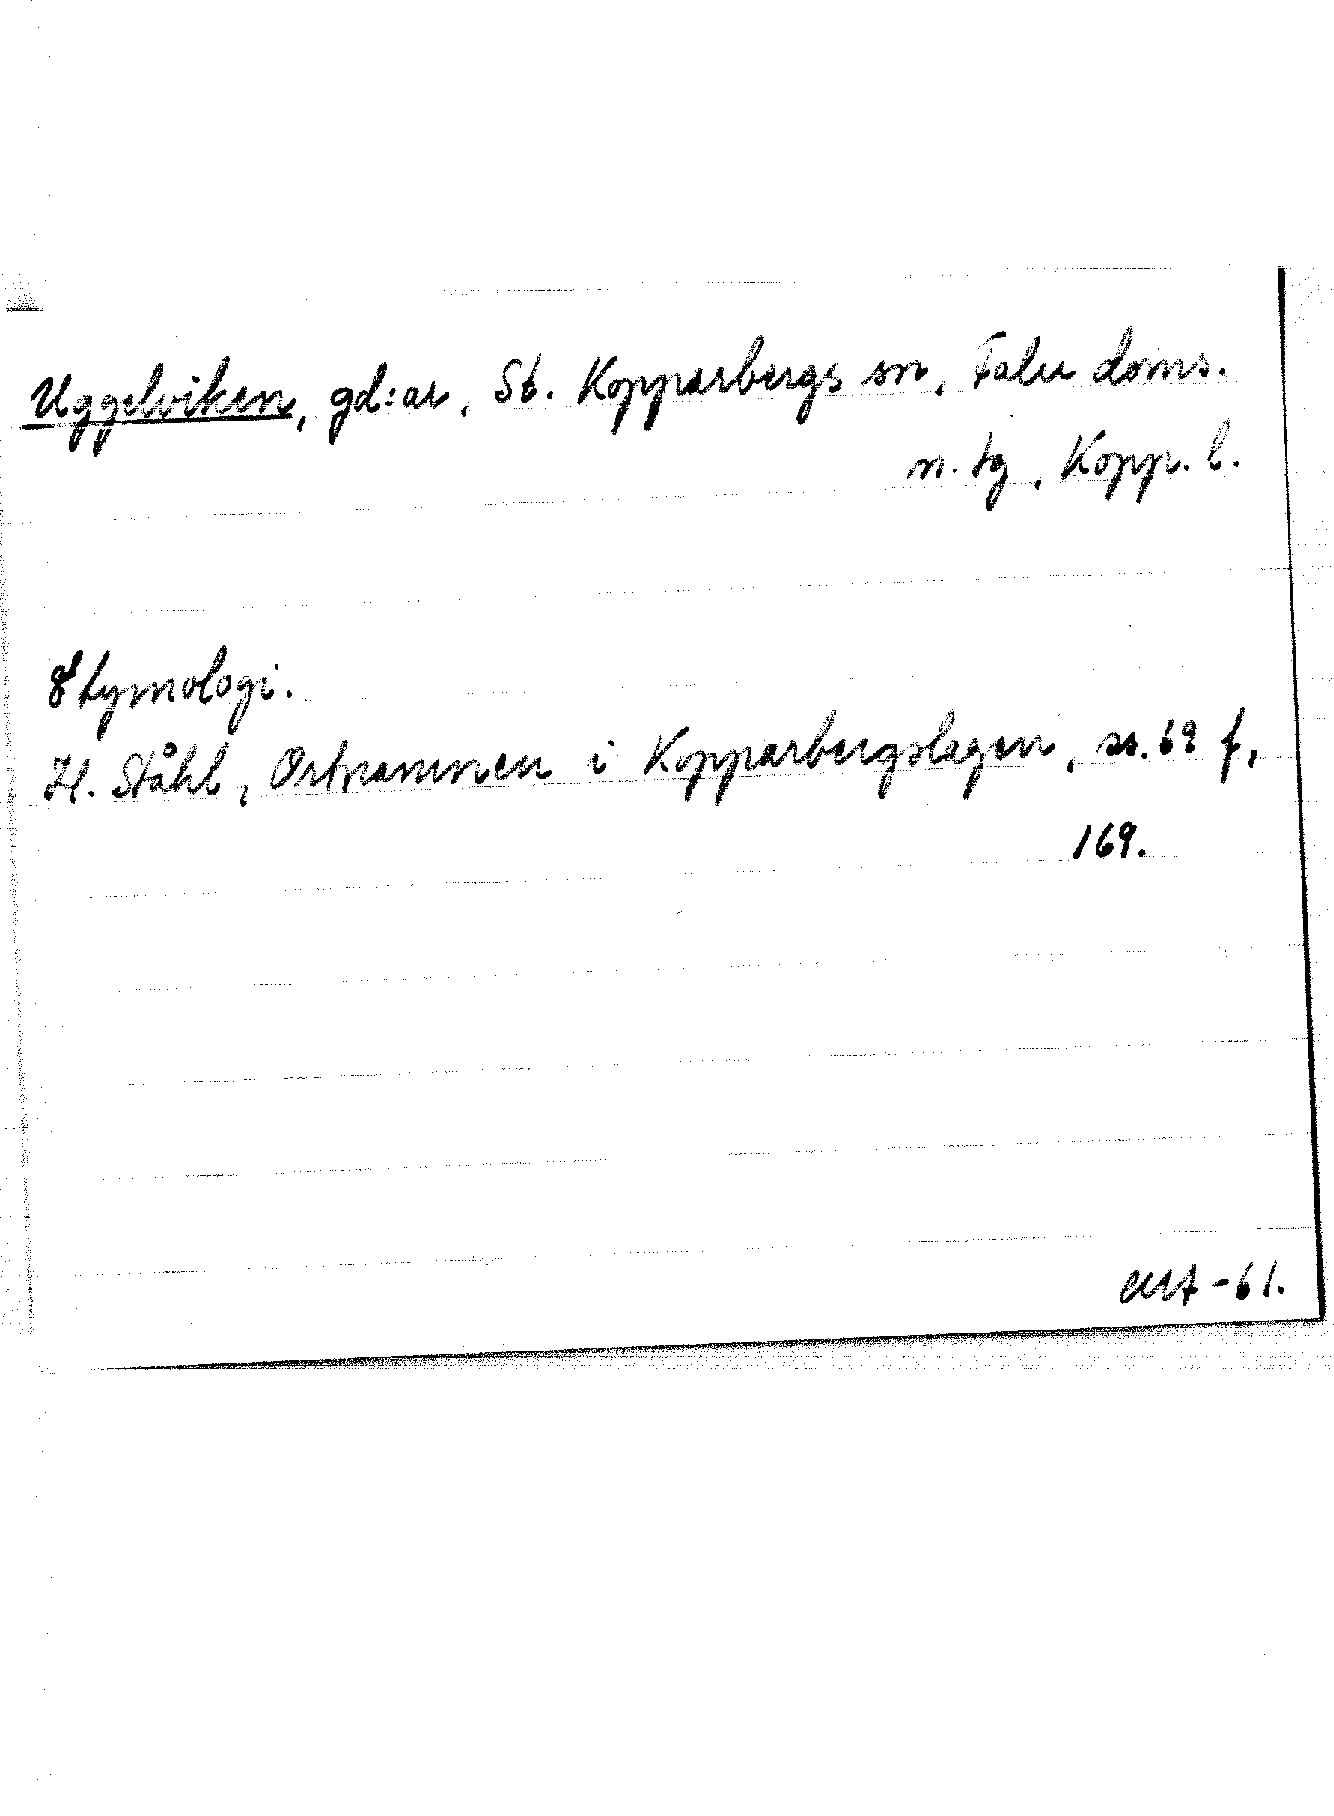 Uggelviken, gd:ar, St. Kopparbergs sn, Falu doms.
n. tg, Kopp. l.
Etymologi.
H. Ståhl, Ortnamnen i Kopparbergslagen, ss. 69 f,
169.
-61.